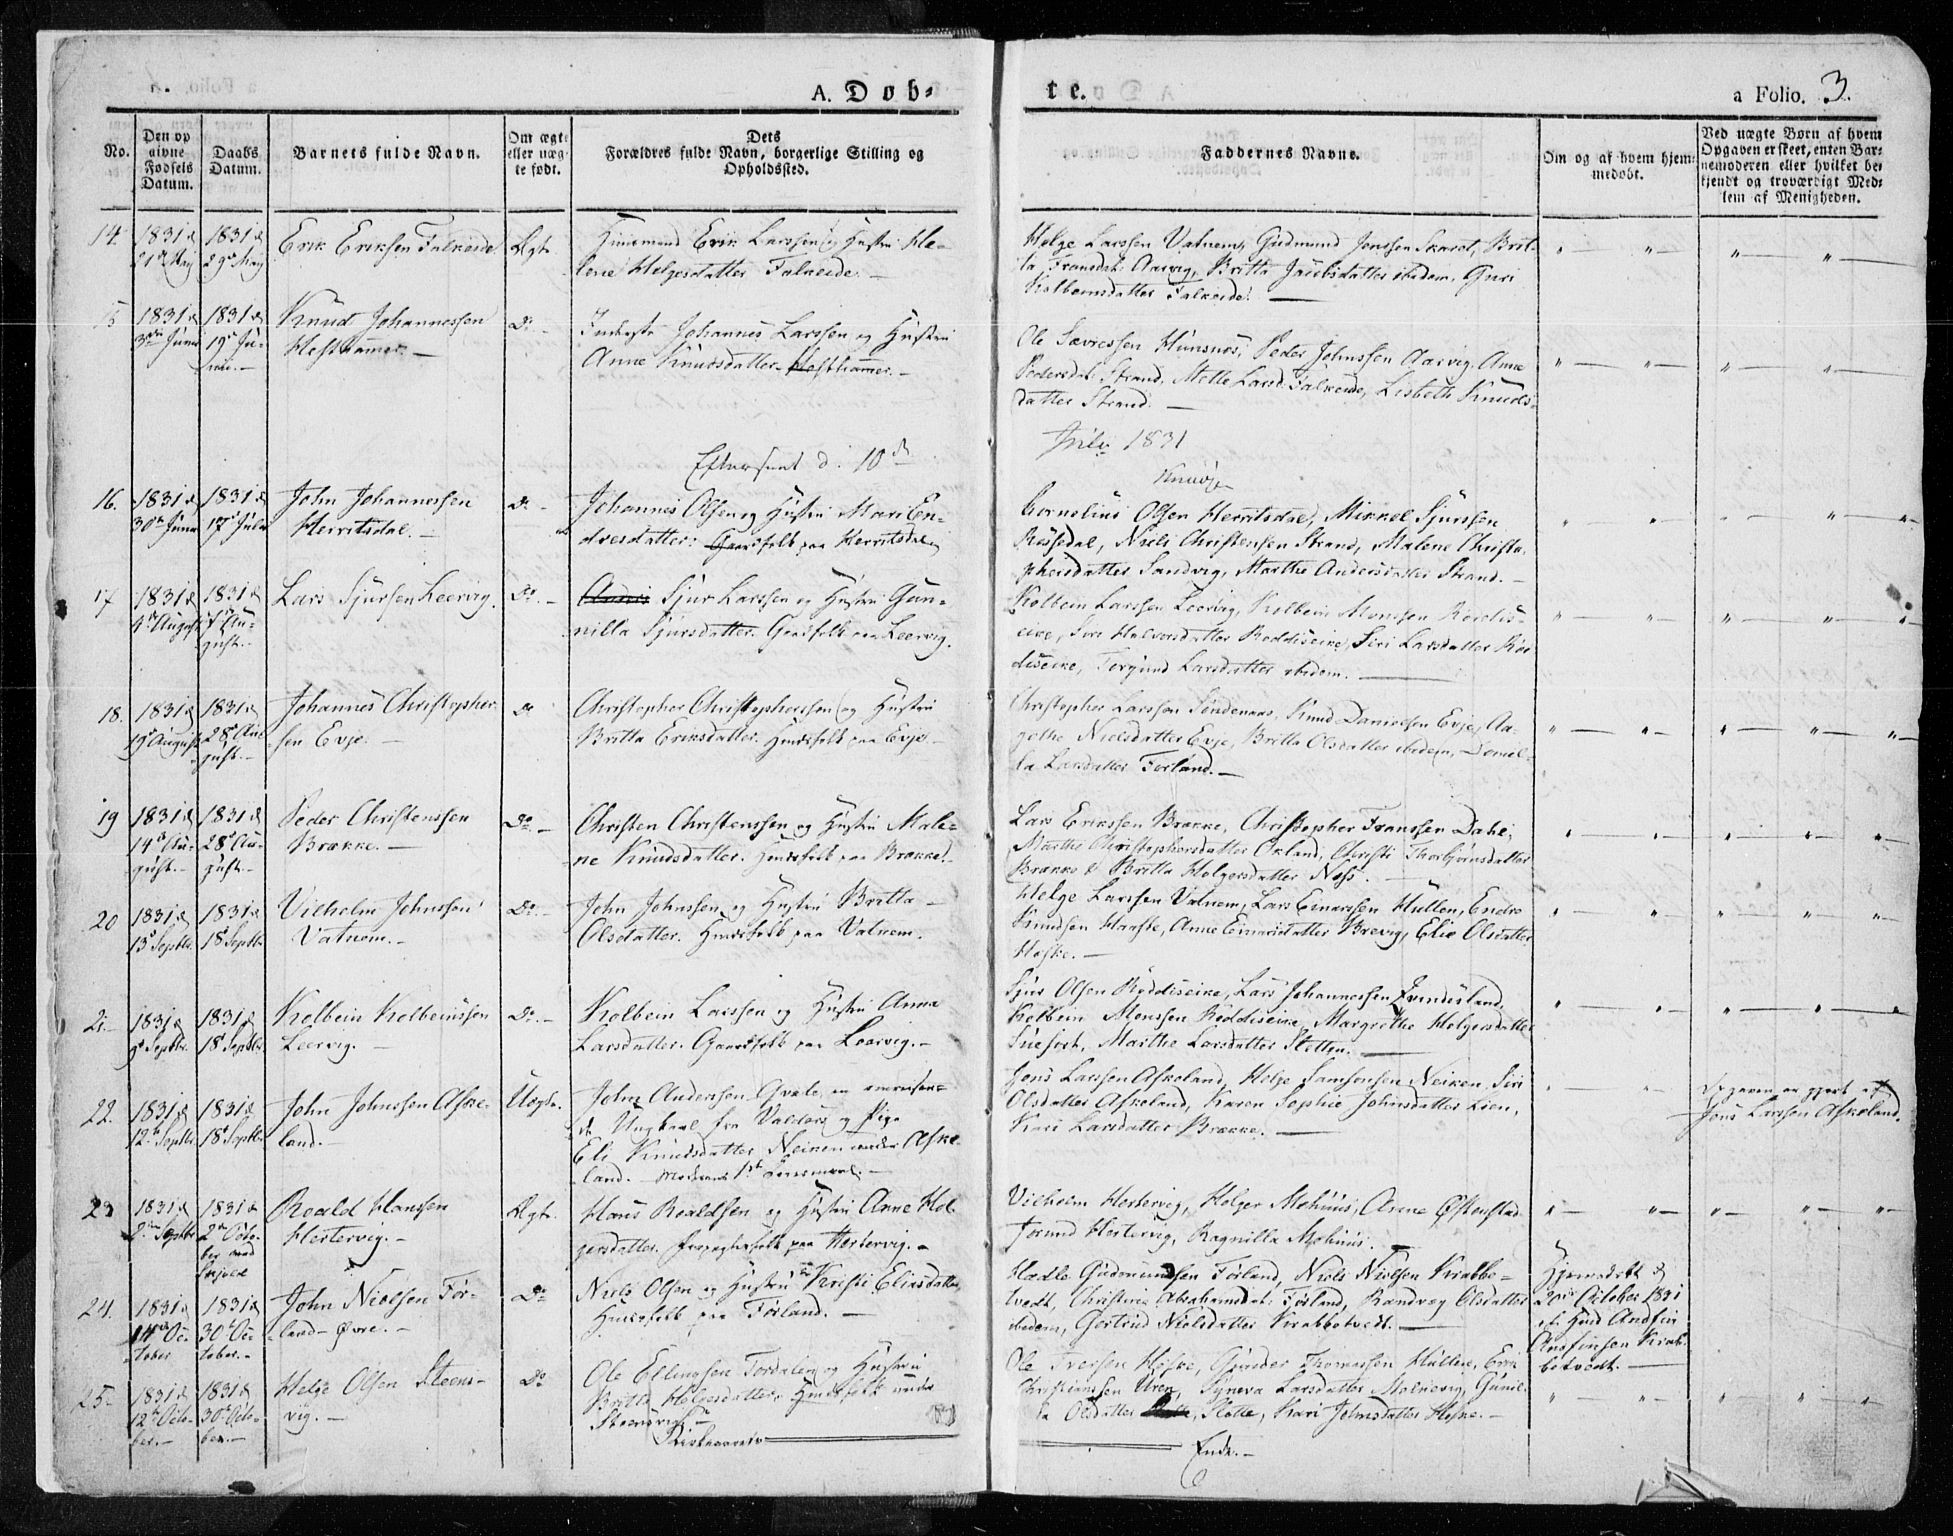 A. Døb-
te.
a Folio. 3.
No.
Den op
givne
Fødsels
Datum.
Daabs
Datum.
Barnets fulde Navn.
Om ægte
eller uæg-
te født.
Dets
Forældres fulde Navn, borgerlige Stilling og
Opholdssted.
Faddernes Navne.
Om og af hvem hjem-
medøbt.
Ved uægte Børn af hvem
Opgaven er skeet, enten Bar-
nemoderen eller hvilket be-
kjendt og troværdigt Med-
lem af Menigheden.
14. 1831 d 21de May
1831 d 29de May
Erik Eriksen Falkeide
Ægte
Huusmand Erik Larssen og Hustru He-
lene Helgesdatter Falkeide.
Helge Larssen Vatnem, Gudmund Jonssen Skarot, Brit-
ta Fransdat: Aarvig, Britta Jacobsdatter ibidem, Guri
Kolbeinsdatter Falkeide.
15 1831 d 3die Junii
1831 d 19de Ju-
nii.
Knud Johannessen
Hesthammer.
Do.
Inderste Johannes Larssen og Hustru
Anne Knudsdatter Hesthammer.
Ole Hunsnes, Peder Johnssen Aarvig, Anne
Pedersdat: Strand, Mette Larsd. Falkeide, Lisbeth Knuds-
datter Strand.
Eftersaaet d. 10de
July 1831
16. 1831 d 30te Junii
1831 d 17de Julii
John Johannessen
Herritsdal.
Do.
Johannes Olsen og Hustru Mari En-
dresdatter: Gaardfolk paa Herritsdal
Cornelius Olsen Herritsdal, Mikkel Sjurssen
Røssedal, Niels Christensen Strand, Malene Christo-
phersdatter Sandvig, Marthe Andersdatter Strand.
17 1831 d 4de August
1831 d 7de Au-
gust.
Lars Sjursen Leervig.
Do.
Sjur Larssen og Hustru Gun-
nilla Sjursdatter. Gaardfolk paa Leervig.
Kolbein Larssen Leervig, Kolbein Monssen Røddis-
eie, Siri Halvorsdatter Røddiseie, Siri Larsdatter Rød-
diseie, Torgund Larsdatter ibidem.
18. 1831 d 19de August
1831 d 28de Au-
gust.
Johannes Christopher-
sen Evje.
Do
Christopher Christophersen og Hustru
Britta Eriksdatter. Huusfolk paa Evje.
Christopher Larssen Søndenaas, Knud Danielsen Evje, Aa-
gothe Nielsdatter Evje, Britta Olsdatter ibidem,
Larsdatter Førland.
19 1831 d 14de Au-
gust.
1831 d 28de Au-
gust.
Peder Christenssen
Brække.
Do.
Christen Christenssen og Hustru Male-
ne Knudsdatter. Huusfolk paa Brække.
Lars Erikssen Brække, Christopher Franssen Dahl,
Marthe Christophersdatter Økland, Christi Thorbjørnsdatter
Brække & Britta Holgersdatter Næss.
20 1831 d 13de Septbr.
1831 d 18de Septbr.
Vilhelm Johnssen
Vatnem.
Do.
John Johnssen og Hustru Britta
Olsdatter. Huusfolk paa Vatnem.
Helge Larssen Vatnem, Lars Einarssen Hüllen, Endre
Knudsen Haaske, Anne Einarsdatter Brevig, Elie Olsdatter
Høske.
21. 1831 d 9de Septbr.
1831 d 18de Septbr.
Kolbein Kolbeinssen
Leervig.
Do.
Kolbein Larssen og Hustru Anna
Larsdatter. Gaardfolk paa Leervig.
Sjur Olsen Røddiseie, Lars Johannessen
Kolbein Monssen Røddiseie, Margrethe Holgersdatter
Marthe Larsdatter Sletten.
22. 1831 d 12te Septbr
1831 d 18de Septbr.
John Johnssen Aske-
land.
Uægte.
John Anderssen Qvale, en omreisen-
de Ungkarl fra Valders og Pige
Eli Knudsdatter Neiken under Aske-
land. Moderens 1ste Leiermaal.
Jens Larssen Askeland, Helge Samsonsen Neiken, Siri
Olsdatter Askeland, Karen Sophie Johnsdatter Lien,
Kari Larsdatter Brække.
Opgaven er gjort af
Jens Larssen Askeland.
23 1831 d 2den Septbr
1831 d 2den Octo-
ber ved
Skjold
Roald Hanssen
Hertervig.
Ægte.
Hans Roaldsen og Hustru Anne Hol-
gersdatter. Forpagterfolk paa Hertervig.
Vilhelm Hertervig, Holger Mehuus, Anne Østenstad,
Torund Hertervig, Ragnilla Mehuus.
24. 1831 d 14de Oc-
tober
1831 d 30te Oc-
tober.
John Nielsen Før-
land Øvre.
Do
Niels Olsen og Hustru Kristi Eliasdatter
Huusfolk paa Førland.
Hadle Gudmundsen Førland, Niels Nielsen Krabbe-
tvedt, Christine Abrahamsdat: Førland, Randveg Olsdatter
ibidem, Gertrud Nielsdatter Krabbetvedt.
Hjemmedøbt d
20de October 1831
af Huusd Andfin
Ansfinsen Krab-
betvedt.
25. 1831 d 12te Octo-
ber.
1831 d 30te Octo-
ber.
Helge Olsen Steens-
vig.
Do
Ole Ellingsen Tordalen og Hustru
Britta Helgesdatter Huusfolk under
Steensvig
Ole Iversen Høske, Gunder Thomassen Hüllen, Erik
Christianssen Uren, Synneva Larsdatter Molnevig, Gunil-
la Olsdatter Slette, Kari Johnsdatter Høske.
Kirkeaarets
Ende.